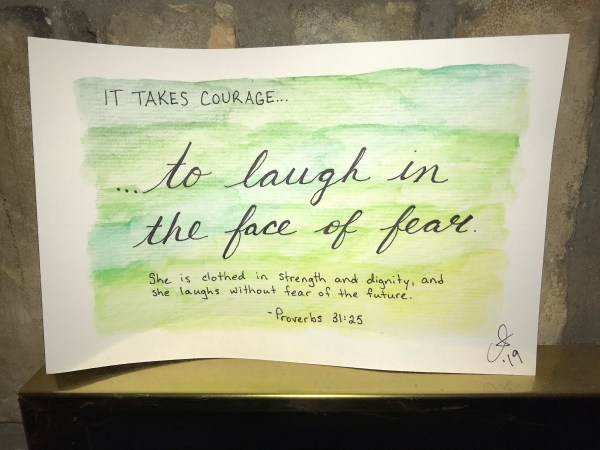 IT TAKES COURAGE...
...to laugh in
the face of fear.
She is clothed in strength and dignity, and
she laughs without fear of the future.
-Proverbs 31:25
.19